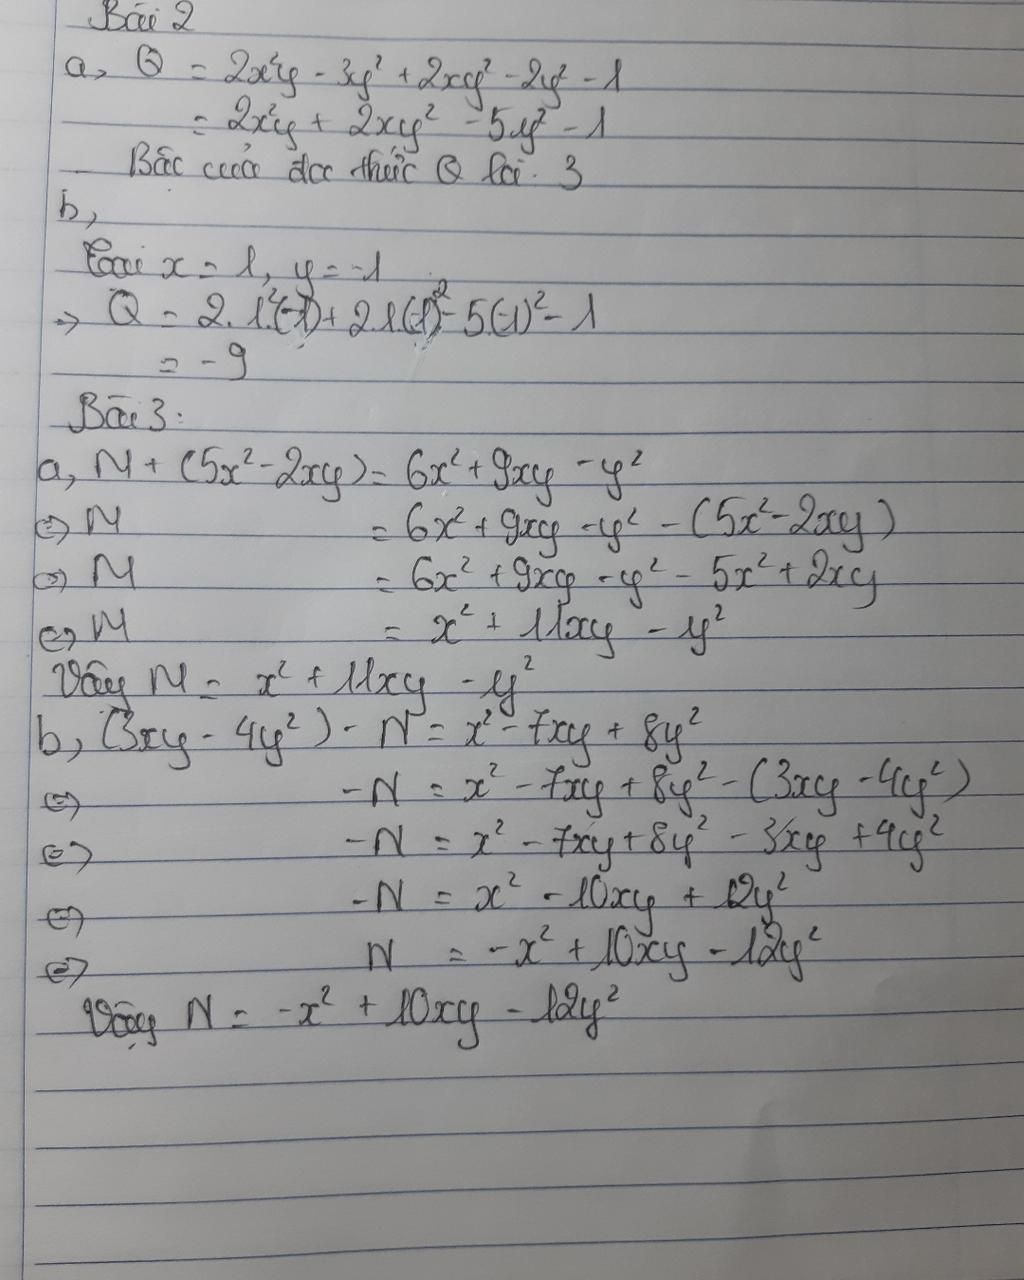 Bài 2
a, Q = 2x²y - 3y² + 2xy² - 2y² - 1
= 2x²y + 2xy² - 5y² - 1
Bậc của đa thức Q là: 3
b,
Tại x = 1, y = -1
→ Q = 2.1².(-1) + 2.1.(-1)² - 5.(-1)² - 1
= -9
Bài 3:
a, M + (5x² - 2xy) = 6x² + 9xy - y²
⇔ M = 6x² + 9xy - y² - (5x² - 2xy)
⇔ M = 6x² + 9xy - y² - 5x² + 2xy
⇔ M = x² + 11xy - y²
Vậy M = x² + 11xy - y²
b, (3xy - 4y²) - N = x² - 7xy + 8y²
⇔ -N = x² - 7xy + 8y² - (3xy - 4y²)
⇔ -N = x² - 7xy + 8y² - 3xy + 4y²
⇔ -N = x² - 10xy + 12y²
⇔ N = -x² + 10xy - 12y²
Vậy N = -x² + 10xy - 12y²